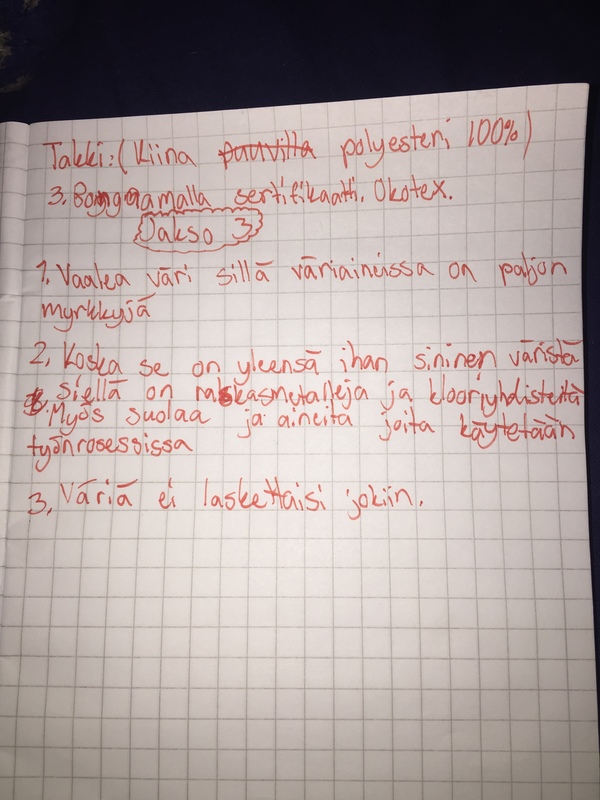 Takki:(Kiina puuvilla polyesteri 100%)
3. Bonggaamalla sertifikaatti. Ökotex.
Jakso 3
1. Vaalea väri sillä väriaineissa on paljon
myrkkyjä
2. Koska se on yleensä ihan sininen väristä
siellä on raskasmetalleja ja klooriyhdisteitä
Myös suolaa ja aineita joita käytetään
työnrosessissa
3. Väriä ei laskettaisi jokiin.